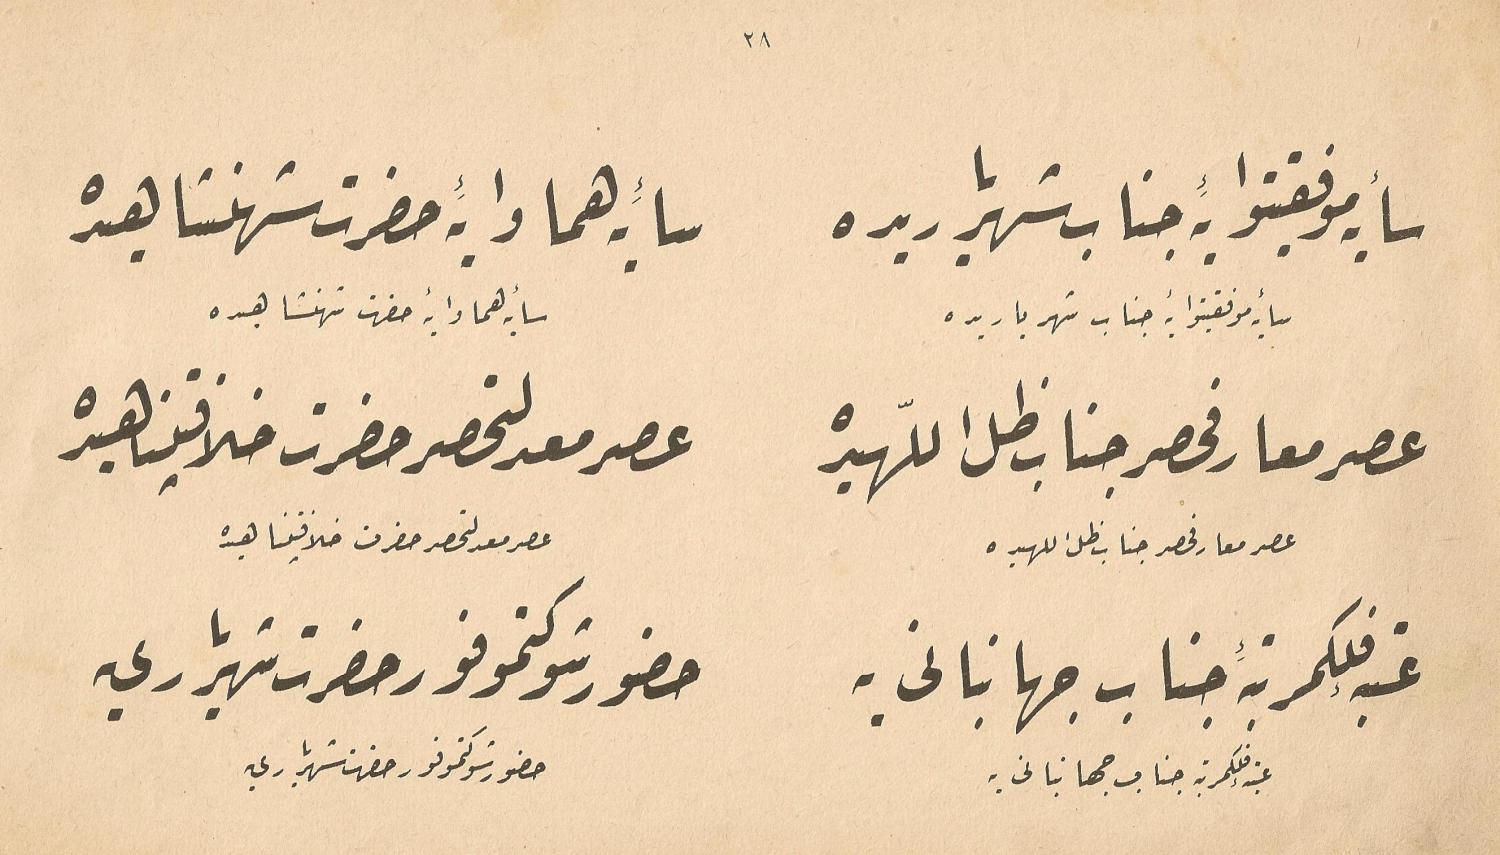 ٢٨
سایۀ موفقیتوایۀ جناب شهریاریده
سایۀ هماوایۀ حضرت شهنشاهیده
سایۀ موفقیتوایۀ جناب شهریاریده
سایۀ هماوایۀ حضرت شهنشاهیده
عصر معارفحصر جناب ظل اللّهیده
عصر معدلتحصر حضرت خلافتپناهیده
عصر معارفحصر جناب ظل اللهیده
عصر معدلتحصر حضرت خلافتپناهیده
عتبۀ فلکمرتبۀ جناب جهانبانی یه
حضور شوکتموفور حضرت شهریاری یه
عتبۀ فلکمرتبه جناب جهانبانی یه
حضور شوکتموفور حضرت شهریاری یه